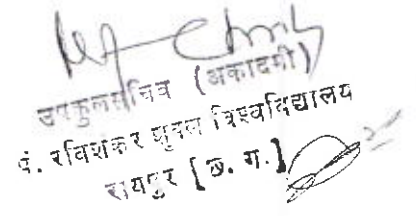 उपकुलसचिव (अकादमी)
पं. रविशंकर शुक्ल विश्वविद्यालय
रायपुर [छ. ग.]